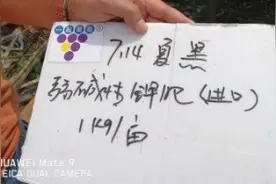 7.14 夏黑
弱碱性钾肥(进口)
1kg/亩
HUAWEI Mate 9
LEICA DUAL CAMERA